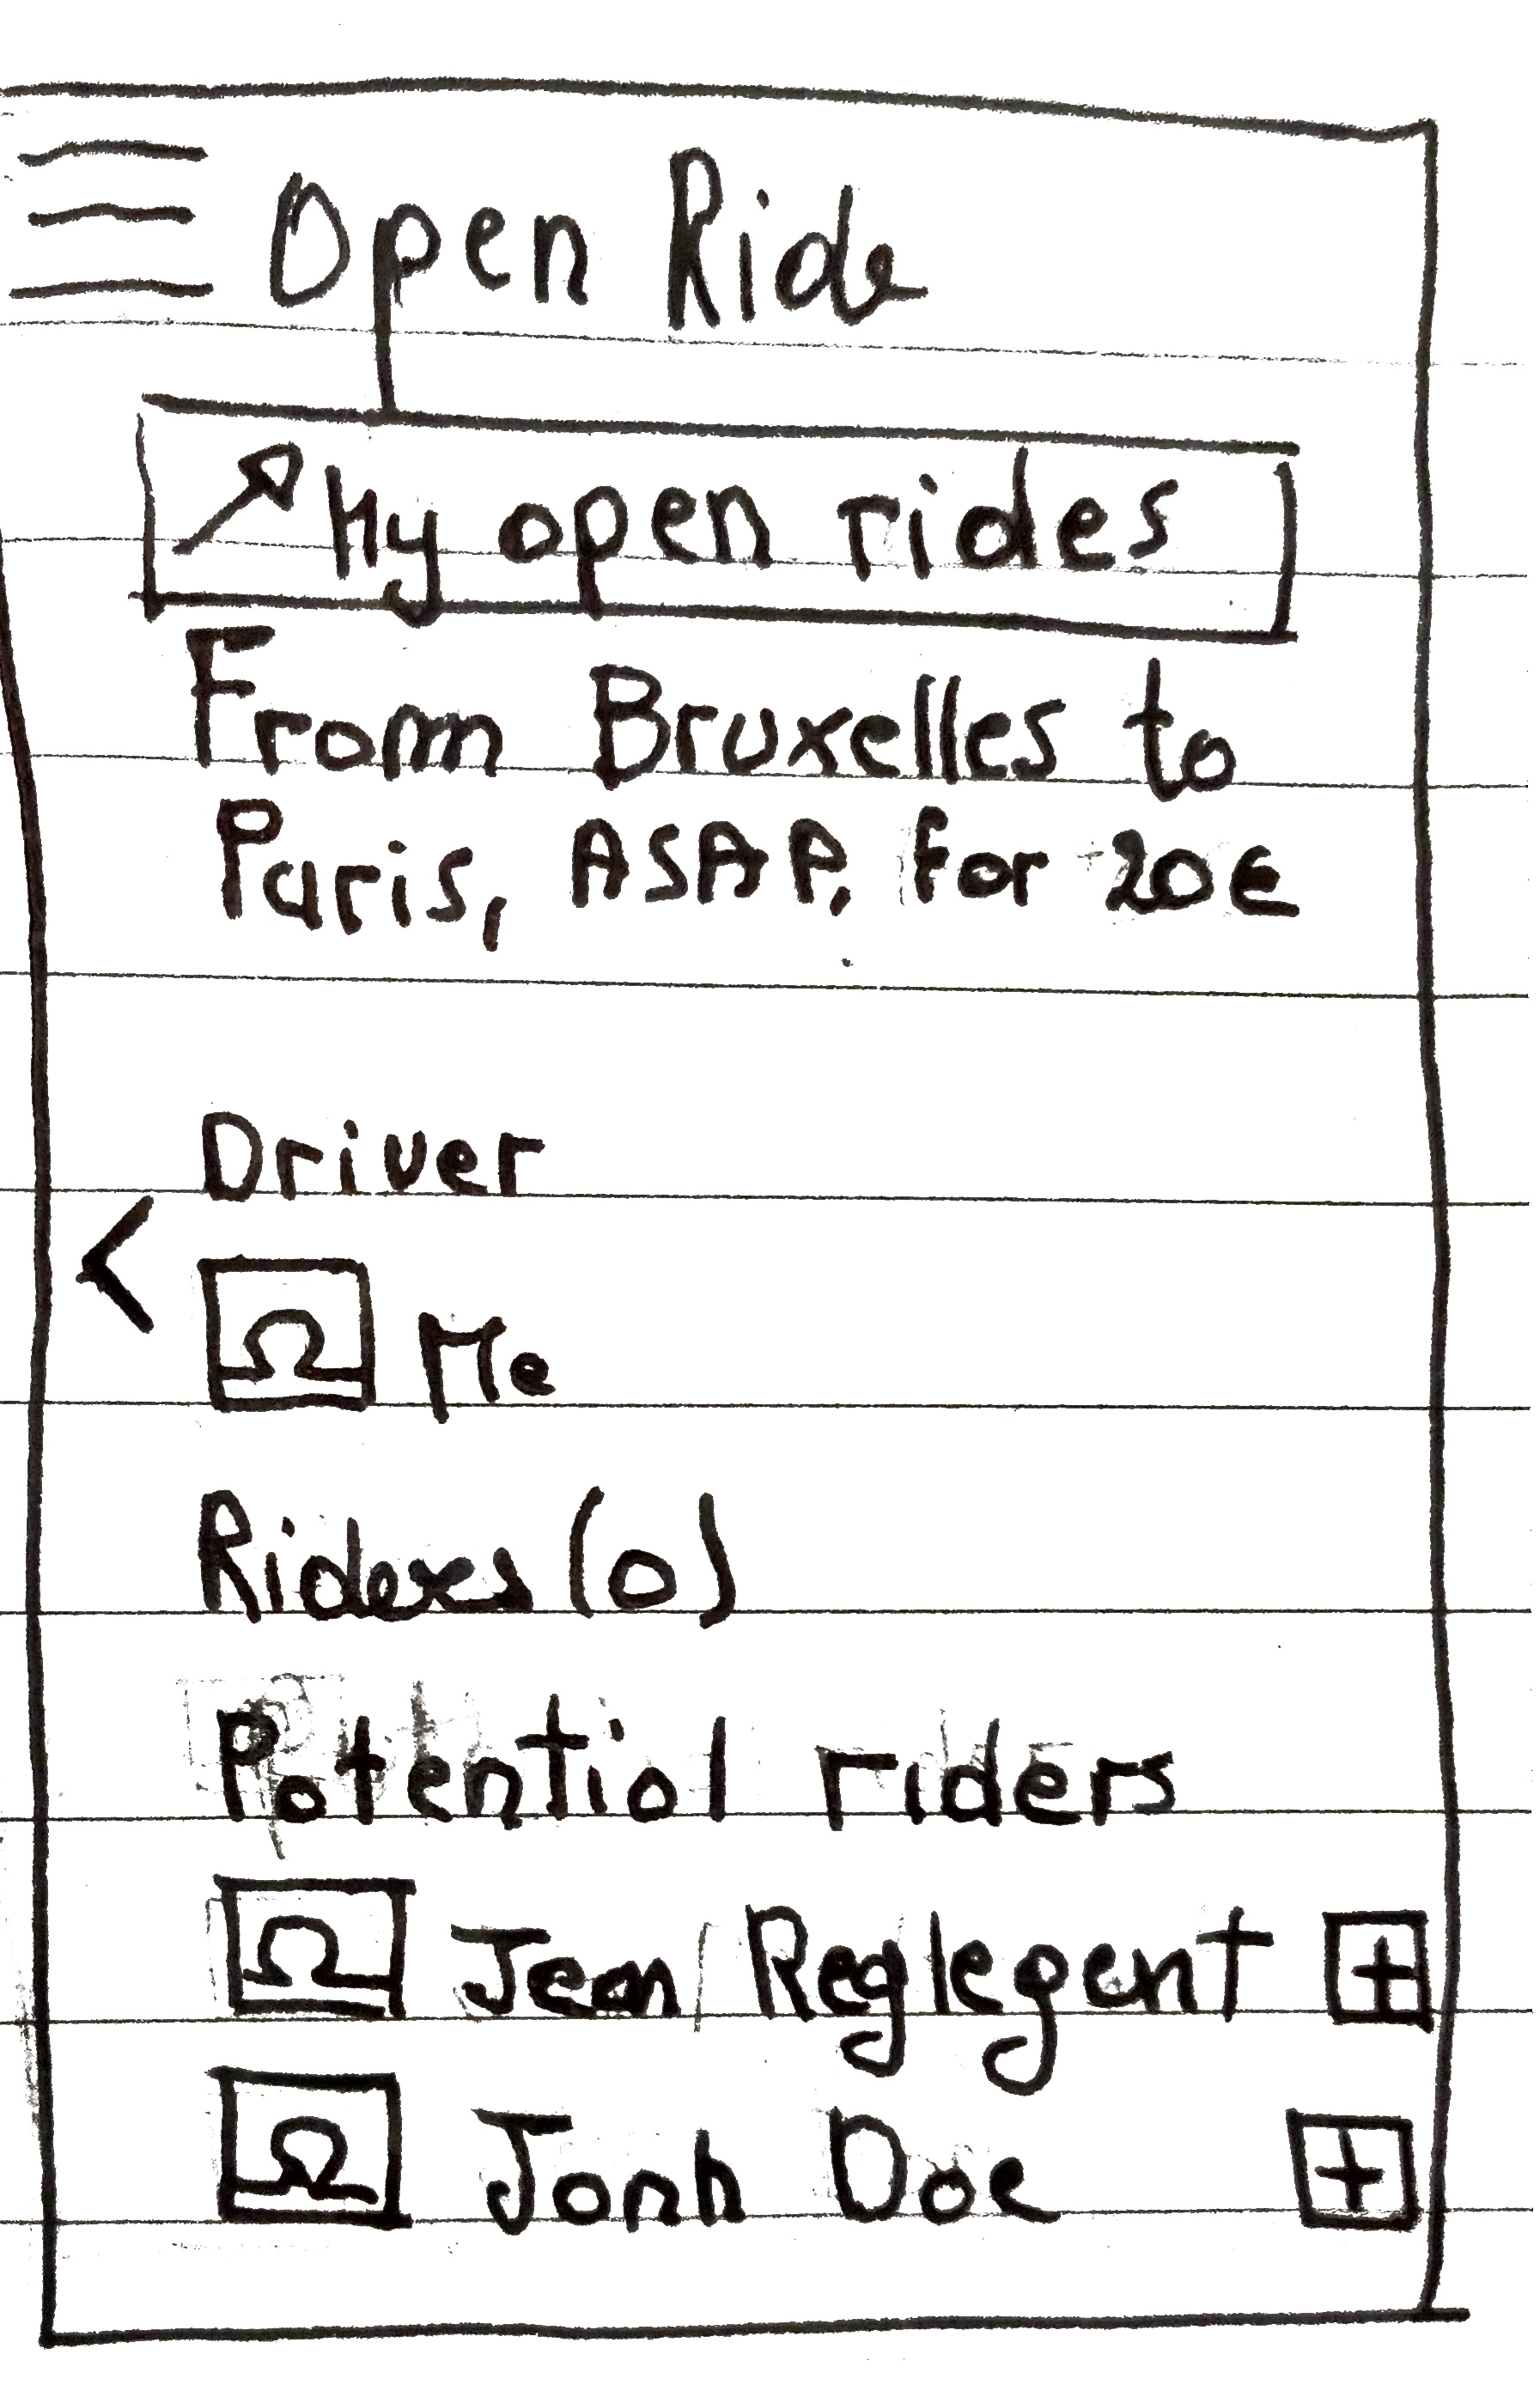 Open Ride
My open rides
From Bruxelles to
Paris, ASAP, for 20€
Driver
Me
Riders (0)
Potential riders
Jean Reglegent
Jonh Doe